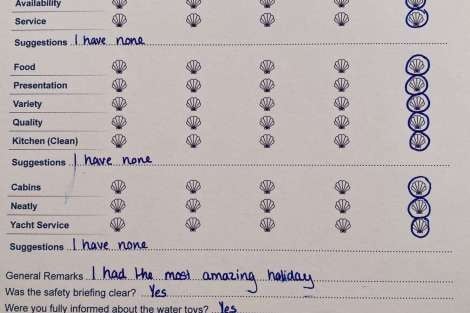 Availability
Service
Suggestions I have none
Food
Presentation
Variety
Quality
Kitchen (Clean)
Suggestions I have none
Cabins
Neatly
Yacht Service
Suggestions I have none
General Remarks I had the most amazing holiday
Was the safety briefing clear? Yes
Were you fully informed about the water toys? Yes